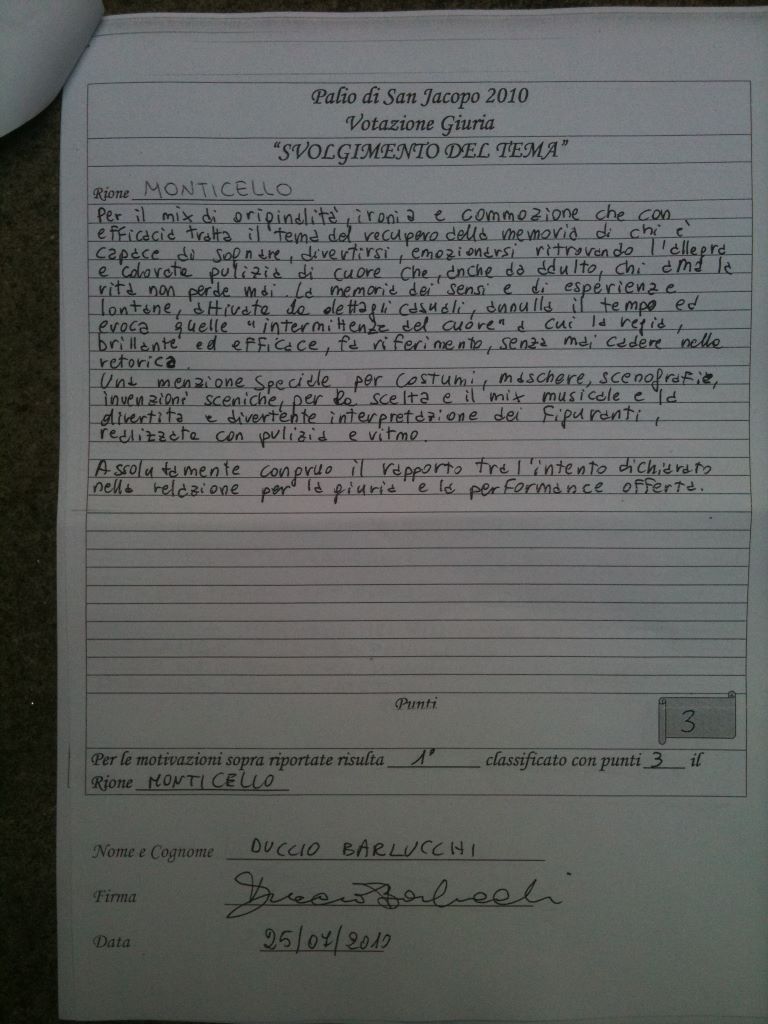 Palio di San Jacopo 2010
Votazione Giuria
"SVOLGIMENTO DEL TEMA"
Rione MONTICELLO
Per il mix di originalità, ironia e commozione che con
efficacia tratta il tema del recupero della memoria di chi è
capace di sognare, divertirsi, emozionarsi ritrovando l'allegra
e colorata pulizia di cuore che, anche da adulto, chi ama la
vita non perde mai. La memoria dei sensi e di esperienze
lontane, attivata da dettagli casuali, annulla il tempo ed
evoca quelle "intermittenze del cuore" a cui la regia,
brillante ed efficace, fa riferimento, senza mai cadere nella
retorica.
Una menzione speciale per costumi, maschere, scenografie,
invenzioni sceniche, per la scelta e il mix musicale e la
divertita e divertente interpretazione dei figuranti,
realizzata con pulizia e ritmo.
Assolutamente congruo il rapporto tra l'intento dichiarato
nella relazione per la giuria e la performance offerta.
Punti
3
Per le motivazioni sopra riportate risulta 1° classificato con punti 3 il
Rione MONTICELLO
Nome e Cognome DUCCIO BARLUCCHI
Firma Duccio Barlucchi
Data 25/07/2010